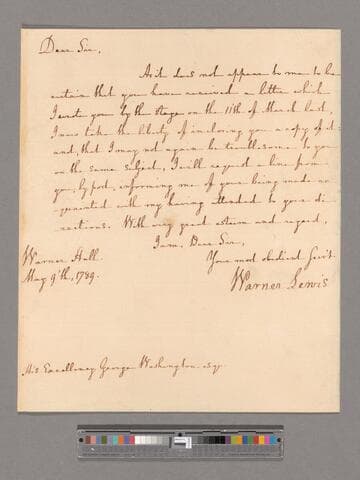 Dear Sir,
As it does not appear to me to be
certain that you have received a letter which
I wrote you by the Stage on the 11th of March last,
I now take the liberty of inclosing you a copy of it:
and, that I may not again be troublesome to you
on the same subject, I will request a line from
you by post, informing me of your being made ac
quainted with my having attended to your di
rections. With very great esteem and regard,
I am, Dear Sir,
Your most obedient Servt
Warner Lewis
Warner Hall
May 9th, 1789.
His Excellency George Washington esqr